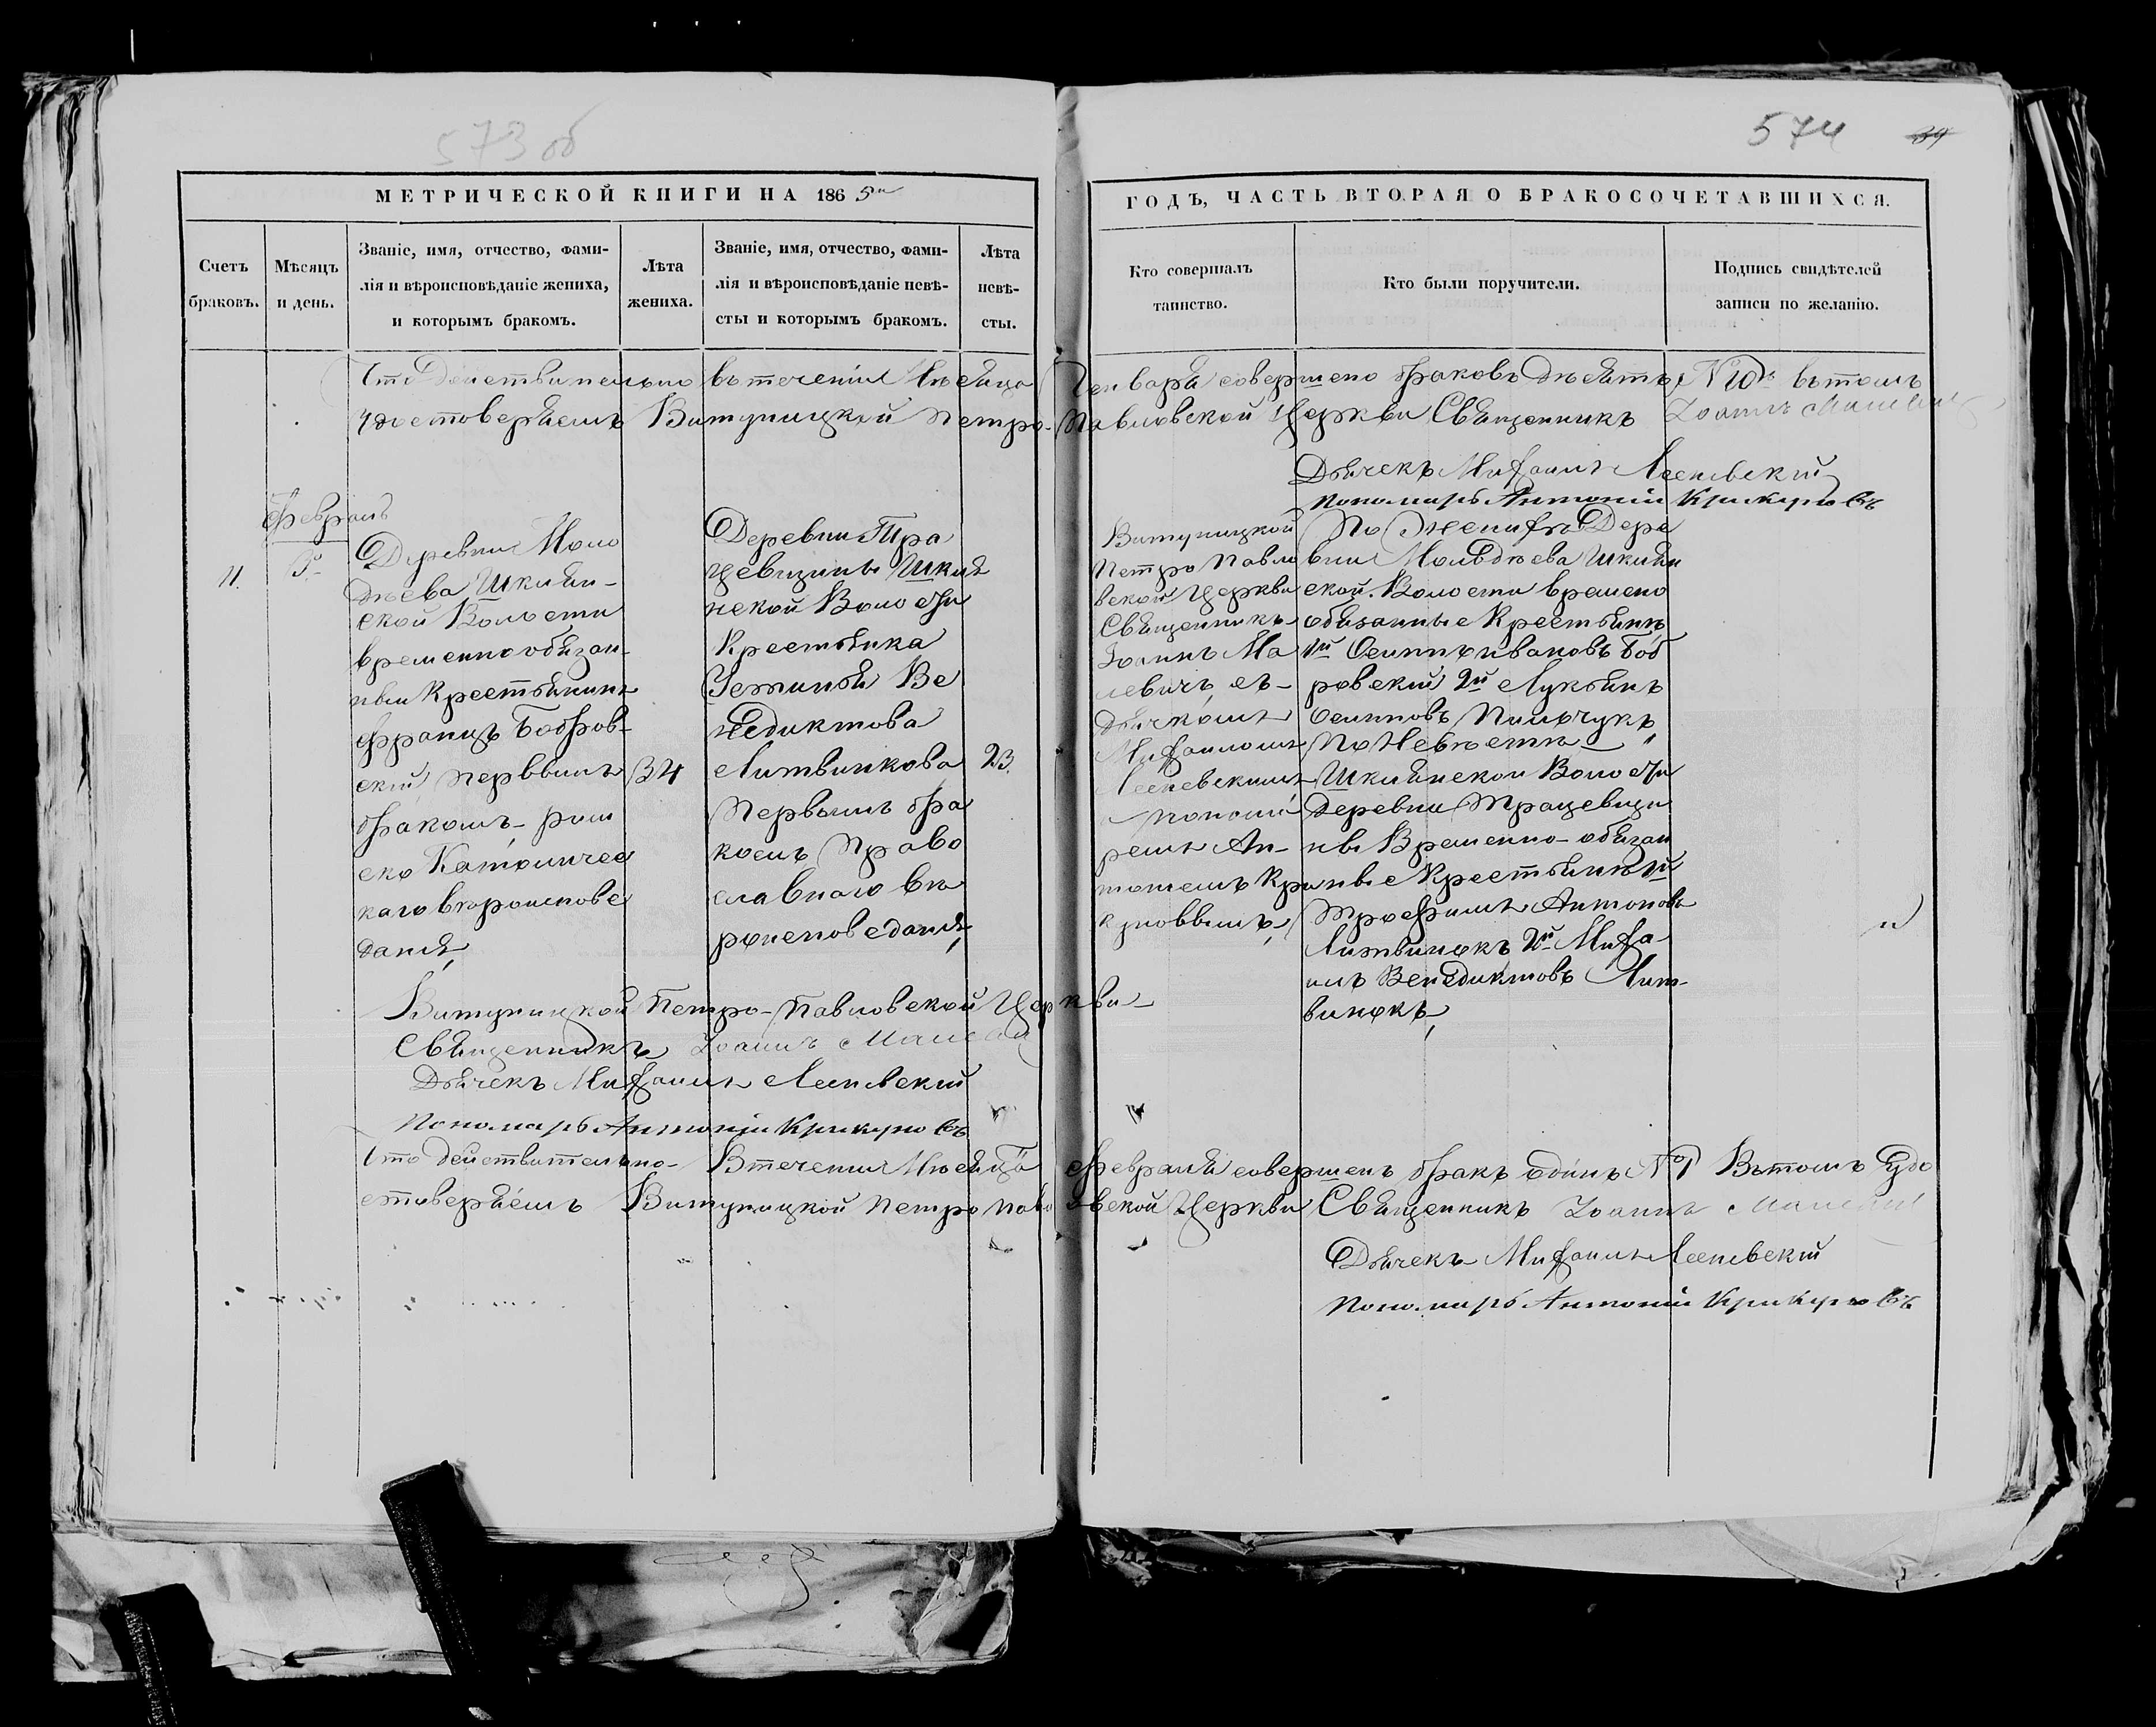 573 об
574
39
МЕТРИЧЕСКОЙ КНИГИ НА 186 5й
ГОДЪ, ЧАСТЬ ВТОРАЯ О БРАКОСОЧЕТАВШИХСЯ.
Счетъ браковъ.
Мѣсяцъ и день.
Званіе, имя, отчество, фами-
лія и вѣроисповѣданіе жениха,
и которымъ бракомъ.
Лѣта жениха.
Званіе, имя, отчество, фами-
лія и вѣроисповѣданіе невѣ-
сты и которымъ бракомъ.
Лѣта невѣ-
сты.
Кто совершалъ
таинство.
Кто были поручители.
Подпись свидѣтелей
записи по желанію.
Что действительно въ теченіи Мѣсяца Генваря совершено браковъ дѣсять № 10ъ въ томъ
удостоверяемъ Витуницкой Петро-Павловской Церкви Священникъ Іоаннъ
Дьячекъ Михаилъ Лесневскій
Пономарь Антоній Крикуновъ
Февраль
11.
5.
Деревни Моло
дѣева Шклян-
ской Волости
временно обязан-
ный Крестьянинъ
Францъ Бобров-
скій, первымъ
бракомъ – рим
ско Католичес
каго вероиспове
дания,
34
Деревни Тра
цевщины Шкля
нской Волости
Крестьянка
Устинья Ве
недиктова
Литвинкова
Первымъ бра
комъ, Право
славнаго ве
роисповедания,
23.
Витуницкой
Петро Павло
вской Церкви
Священникъ
Іоаннъ Ма
левичъ, съ–
Дьячкомъ
Михаиломъ
Лесневскимъ
и понома
ремъ Ан–
тониемъ Кри
куновымъ,
По Жениху Дере
вни Молодѣева Шклян
ской Волости времено
обязанные Крестьяне
1й Осипъ Ивановъ Боб
ровский 2й Лукьянъ
Осиповъ Пилючукъ,
По Невѣсте –
Шклянской Волости
Деревни Трацевщи
ны Временно-обязан
ные Крестьяне 1й
Трофимъ Антоновъ
Литвинокъ 2й Миха
илъ Венедиктовъ Лит-
винокъ,
Витуницкой Петро-Павловской Церкви –
Священникъ Іоаннъ
Дьячекъ Михаилъ Лесневский
Пономарь Антоній Крикуновъ
Что действительно – В течении Мѣсяца Февраля совершенъ бракъ одинъ №1 Въ томъ удо
стоверяемъ Витуницкой Петро Павловской Церкви Священникъ Іоаннъ
Дьячекъ Михаилъ Лесневскій
Пономарь Антоній Крикуновъ